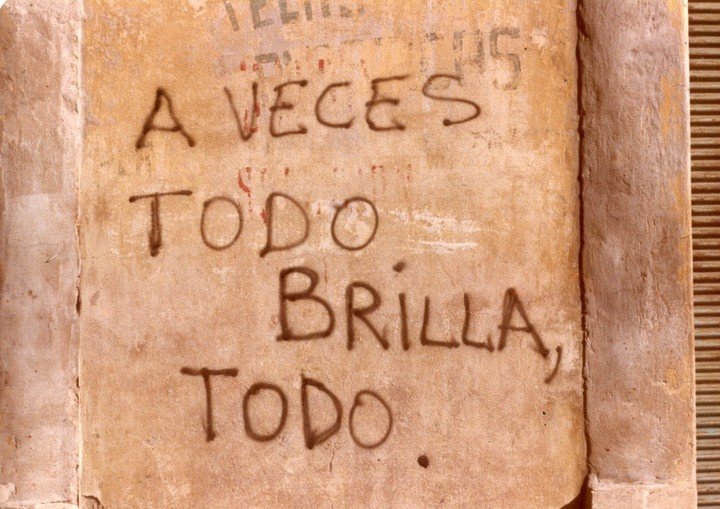 A VECES
TODO
BRILLA,
TODO.